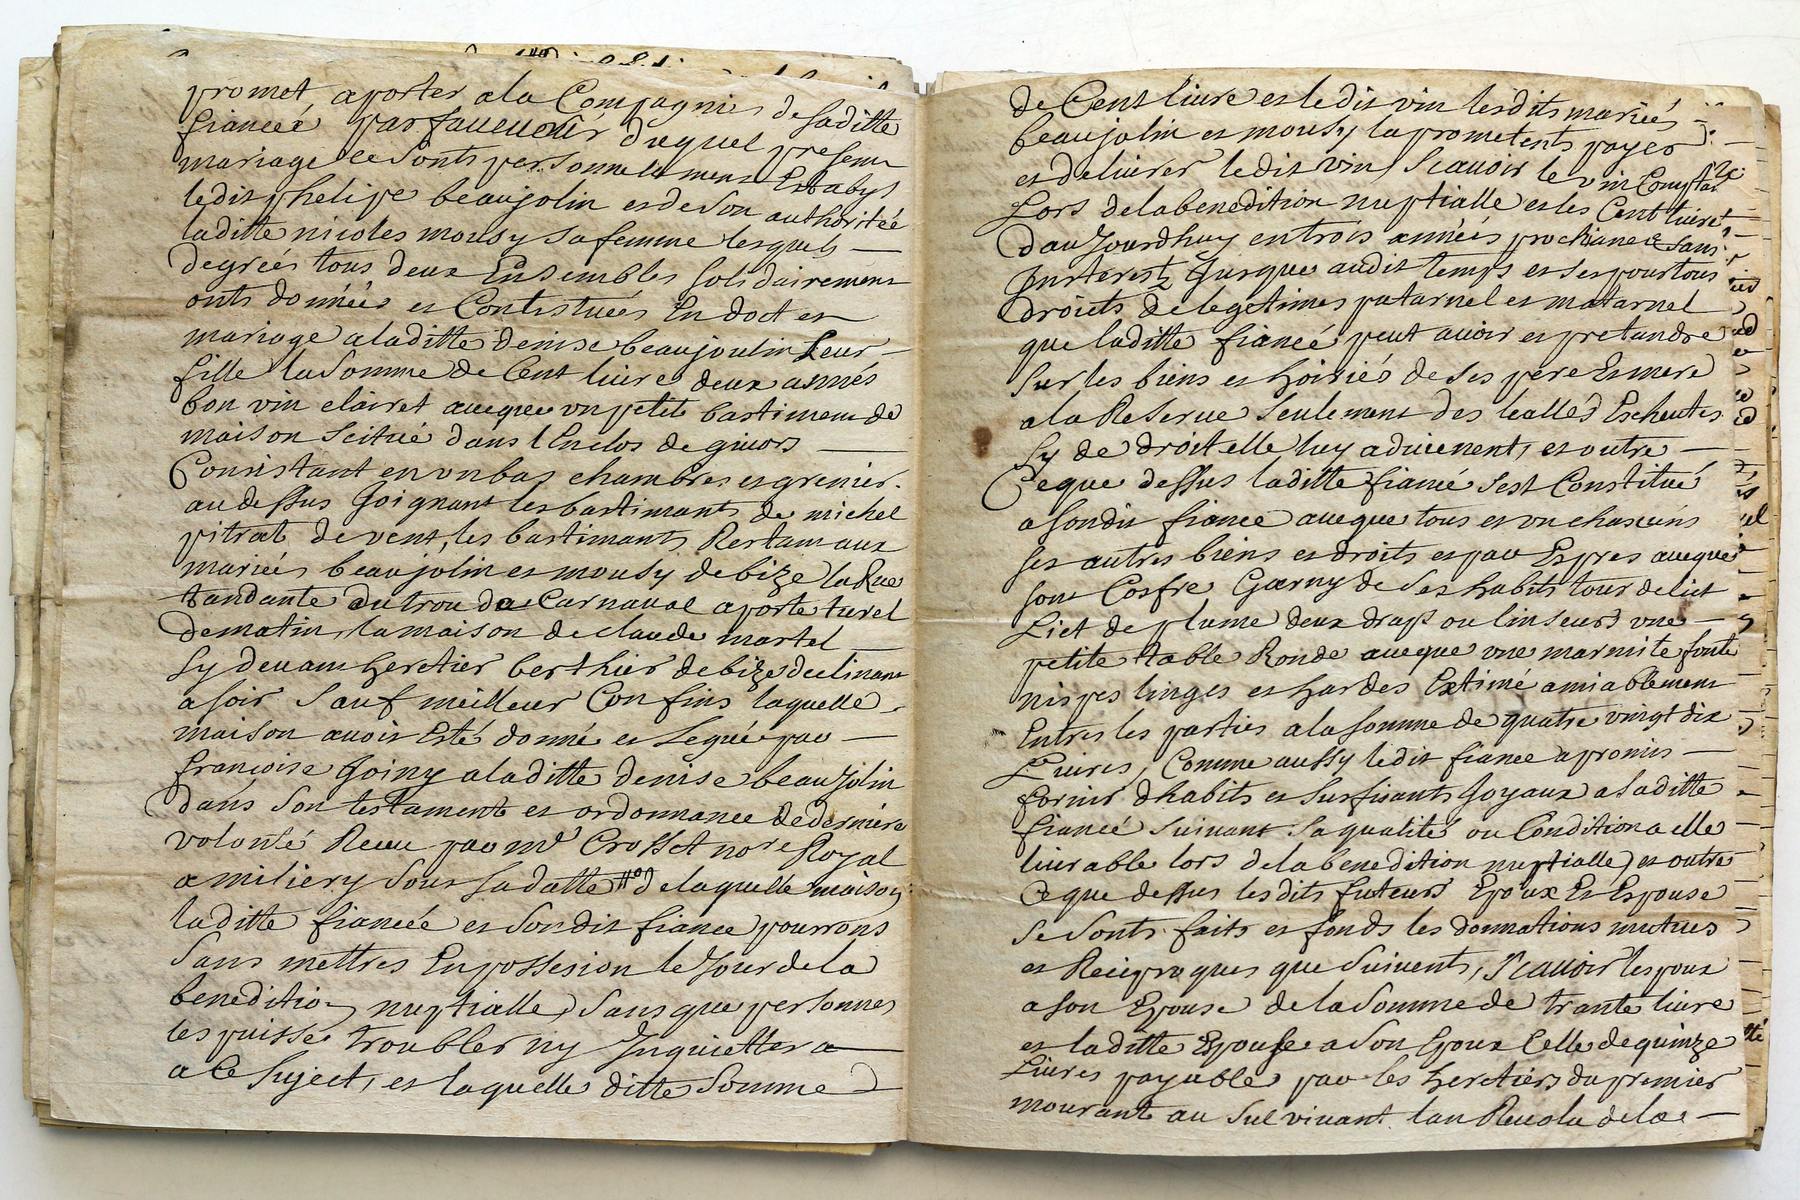 promet aporter ala Compagnie de saditte
fianceé par faueur duquel presem
mariage ce sonts personnelement Establys
ledit phelipe beaujolin et de son authoritée
laditte nicoles mousy sa femme lesquels
degrées tous deux Ensembles solidairement
onts donnéé et Contistuéé En doct et
mariage aladitte denise beaujoulin Leur
fille la Somme de Cent liure deux asnnés
bon vin clairet auecque vn petit bastiment de
maison scitué dans l Enclos de giuors
Consistant en vn bas chambres et grenier
au dessus Joignant les bastimants de michel
pitrat de vent, les bastimants Restam aux
mariés beaujolin et mousy de bize la Rue
tandante du trou de Carnaual a porte turel
de matin, la maison de claude martel
sy deuam heretier berthier de bize declinam
a soir sauf meilleur Confins laquelle
maison auoit Esté donné et Leguéé par
françoise Joiny aladitte denise beauJolin
dans son testament et ordonnance de derniere
volonté Receu par me Crosset nore Royal
a miliery sous sa datte de laquelle maison
laditte fianceé et son dit fiance pourrons
sans mettres En possesion le Jour de la
benedition nuptialle, sans que personnes
les puisse troubler ny Inquietter a
a Ce suject, et laquelle ditte somme
de Cent liure et le dit vin lesdits mariés
beaujolin et mousy la prometents payer
et deliurer ledit vin, scauoir le vin Comptan
Lors de la benedition nuptialle et les Cent liures
dauJourdhuy en trois années prochaines sans
Insterest Jusque audit temps et ses pour tous
droits de legitimes patarnel et matarnel
que laditte fianceé peut auoir et pretandre
sur les biens et hoiriés de ses pere Et mere
a la Reserue seulement des lealles Escheutes
sy de droit elle luy aduienent, et outre
Ce que dessus laditte fiancé s est Constitué
a son dit fiance auecque tous et vn chascuns
ses autres biens et droits et par Expres auecque
son Cosfre Garny de ses habits tour de lict
Lict de plume deux draps ou linseurs vne
petite table Ronde auecque vne marmite fonte
nipes linges et hardes Extimé amiablement
Entres les parties a la somme de quatre vingt dix
Liures, Comme aussy le dit fiance a promis
fornir dhabits et sursisants Joyaux a saditte
fianceé suiuant sa qualité ou Condition a elle
liurable lors de la benedition nuptialle, et outre
Ce que dessus les dits futeurs Epoux Et Espouse
se sonts faits et fonds les donnations mutues
et Reciproques que suiuent, scauoir lespoux
a son Epouse de la Somme de trante liure
et laditte Epouse a son Epoux Celle de quinze
Liures payable par les heretiers du premier
mourant au suruiuant lan Reuolu de la